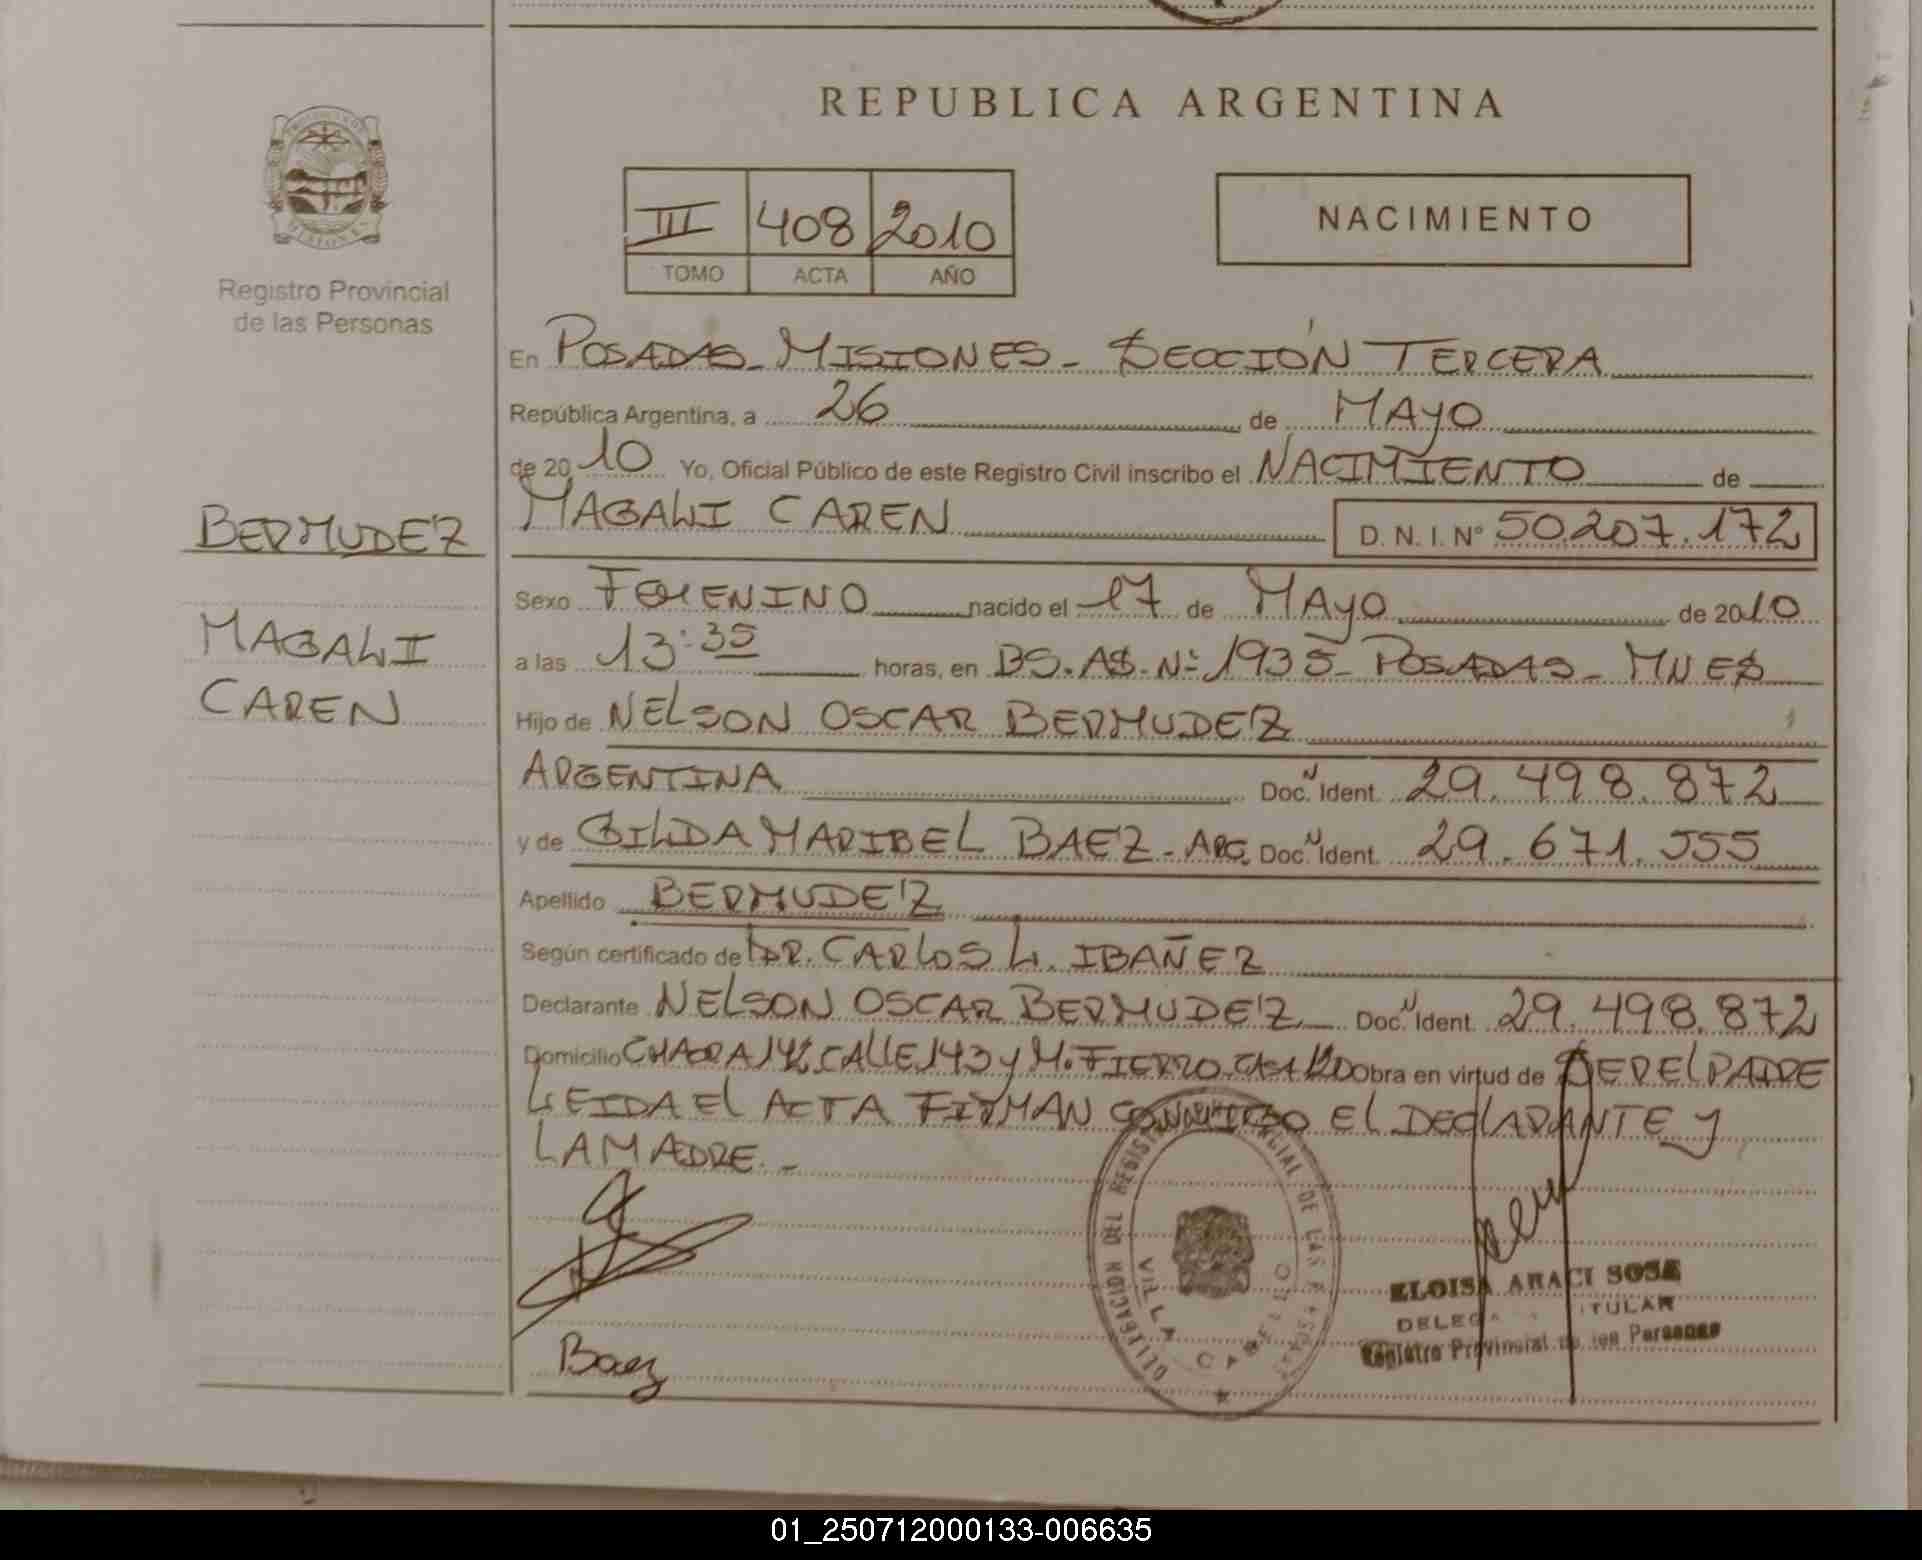 REPUBLICA ARGENTINA
Registro Provincial
de las Personas
III 408 2010
TOMO ACTA AÑO
NACIMIENTO
BERMUDEZ
MAGALI
CAREN
En POSADAS - MISIONES - SECCIÓN TERCERA
República Argentina, a 26 de MAYO
de 2010 Yo, Oficial Público de este Registro Civil inscribo el NACIMIENTO de
MAGALI CAREN D. N. I. Nº 50.207.172
Sexo FEMENINO nacido el 17 de MAYO de 2010
a las 13:35 horas, en BS. AS. Nº 1935 - POSADAS - MNES
Hijo de NELSON OSCAR BERMUDEZ
ARGENTINA Doc. Ident. 29.498.872
y de GILDA MARIBEL BAEZ - ARG. Doc. Ident. 29.671.555
Apellido BERMUDEZ
Según certificado de DR. CARLOS L. IBAÑEZ
Declarante NELSON OSCAR BERMUDEZ Doc. Ident. 29.498.872
Domicilio CHACRA 142 CALLE 143 y M. FIERRO CASA Obra en virtud de SER EL PADRE
LEIDA EL ACTA FIRMAN CONMIGO EL DECLARANTE y
LA MADRE. -
Baez
DELEGACION DEL REGISTRO PROVINCIAL DE LAS PERSONAS
VILLA CABELLO
ELOISA ARACI SOSA
DELEGADA TITULAR
Registro Provincial de las Personas
01_250712000133-006635